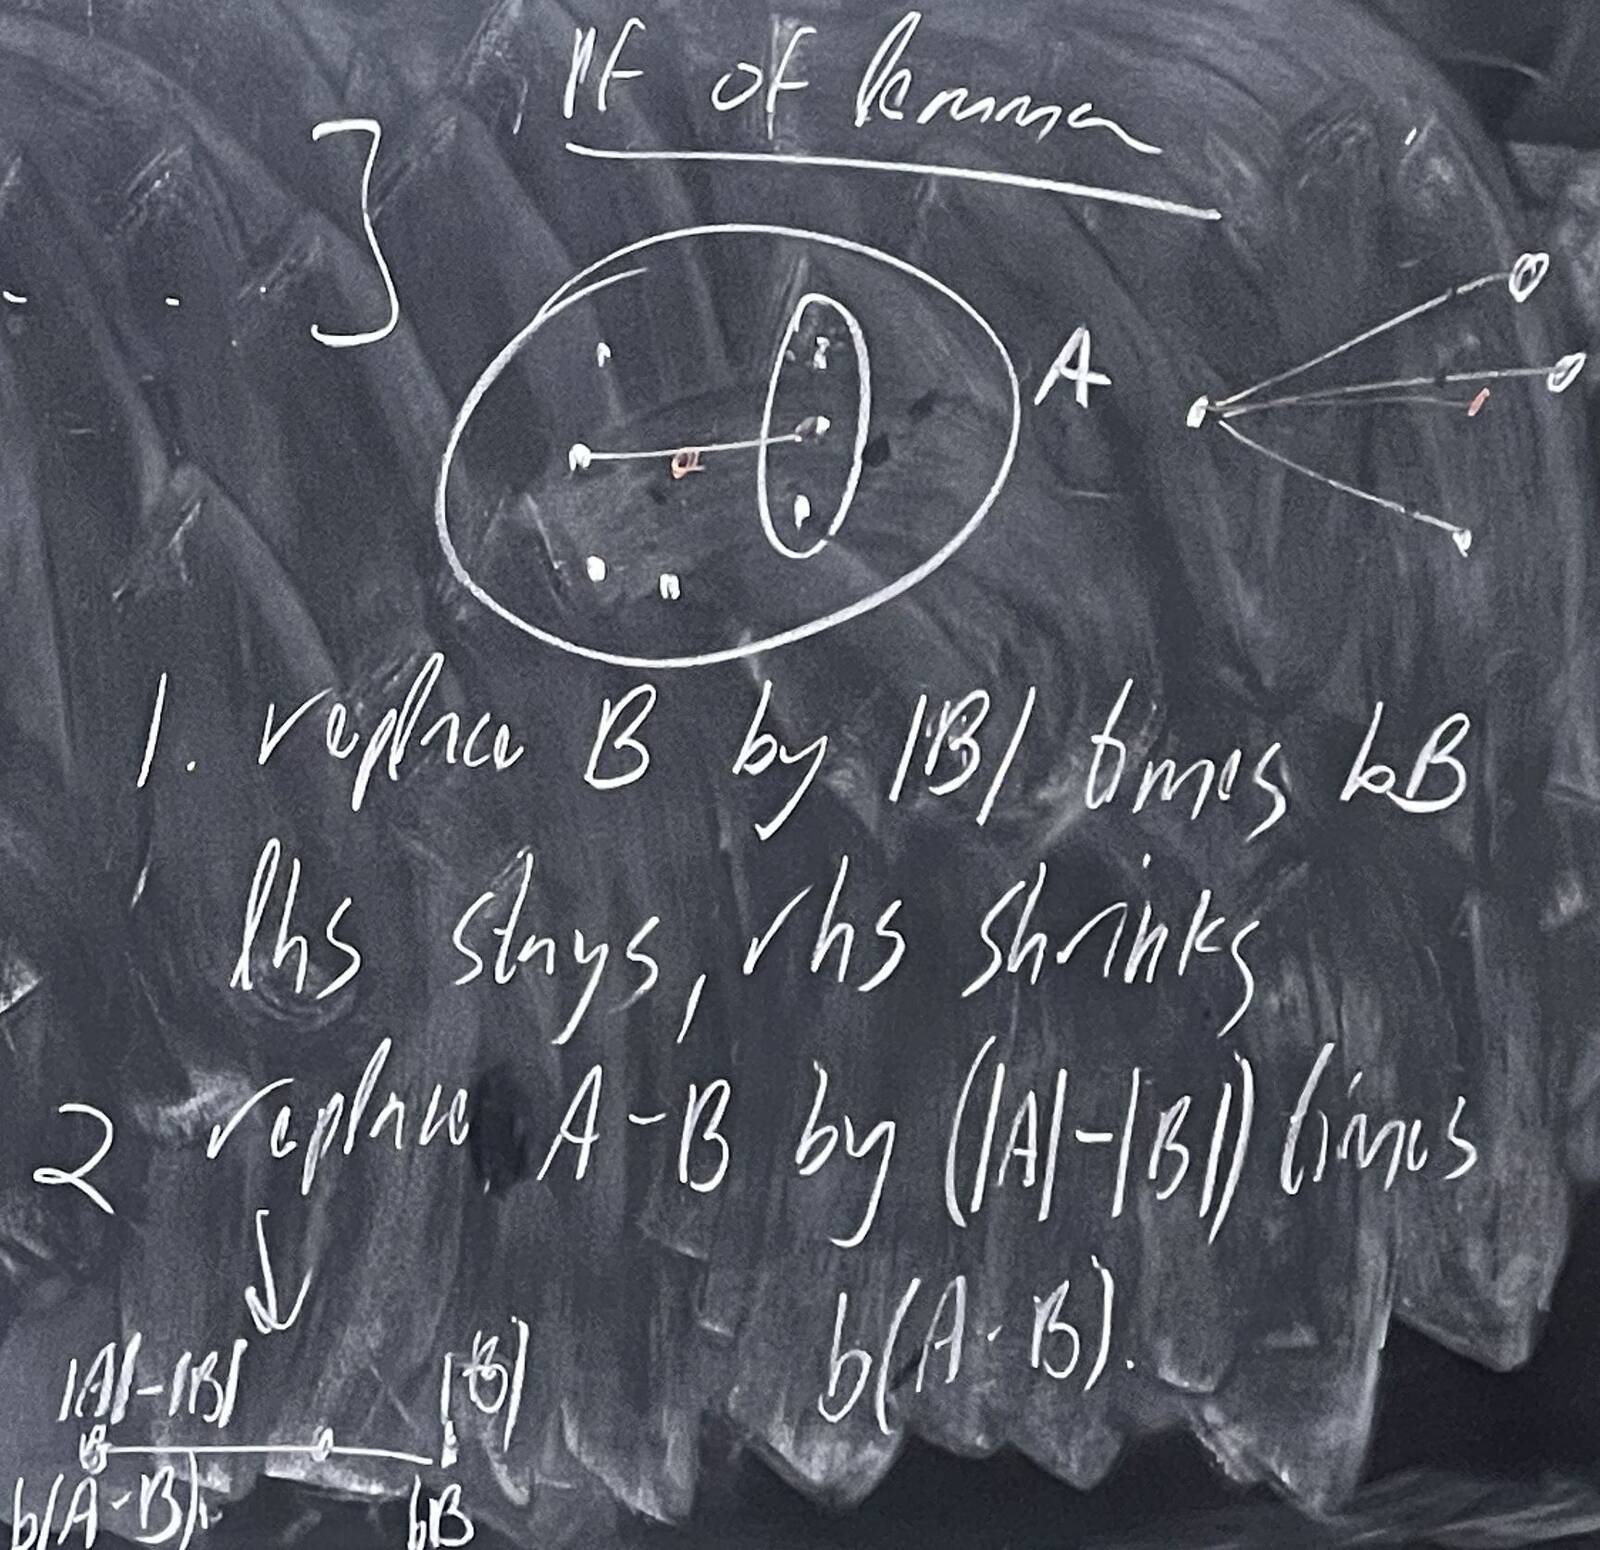 Pf of lemma
]
A
1. replace B by |B| times bB
lhs stays, rhs shrinks
2 replace A-B by (|A|-|B|) times
b(A-B).
↓
|A|-|B| |B|
b(A-B) bB